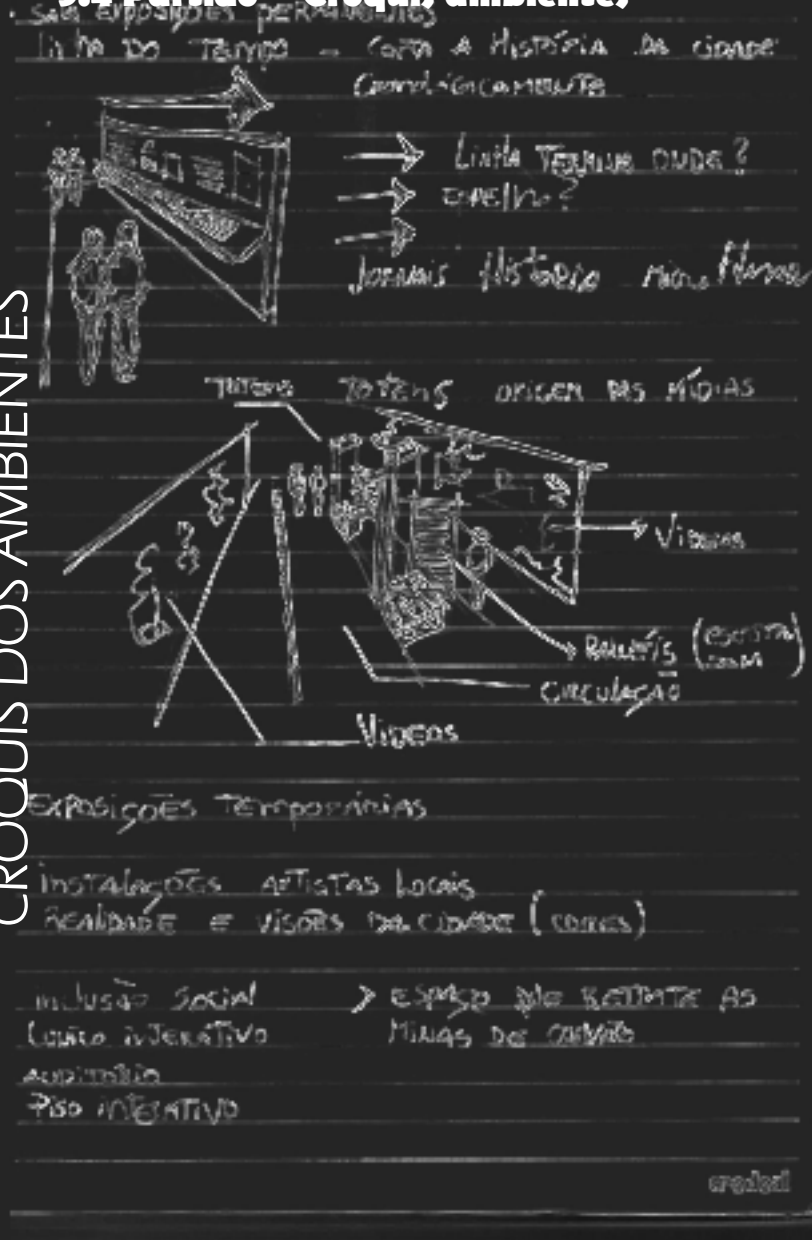 5.4 Partido - Croqui, ambiente,
CROQUIS DOS AMBIENTES
• SALA EXPOSIÇÕES PERMANENTES
LINHA DO TEMPO - CONTA A HISTÓRIA DA CIDADE
CRONOLOGICAMENTE
LINHA TERMINA ONDE?
ESPELHO?
JORNAIS HISTÓRIA MICRO FILMADO
TOTENS TOTENS ORIGEM DAS MÍDIAS
VIDEOS
PAINÉIS
CIRCULAÇÃO
VIDEOS
EXPOSIÇÕES TEMPORÁRIAS
INSTALAÇÕES ARTISTAS LOCAIS
REALIDADE E VISÕES DA CIDADE (CORES)
INCLUSÃO SOCIAL > ESPAÇO QUE RETRATE AS
INTERATIVO MINAS DE CARVÃO
AUDITÓRIO
PISO INTERATIVO
credeal